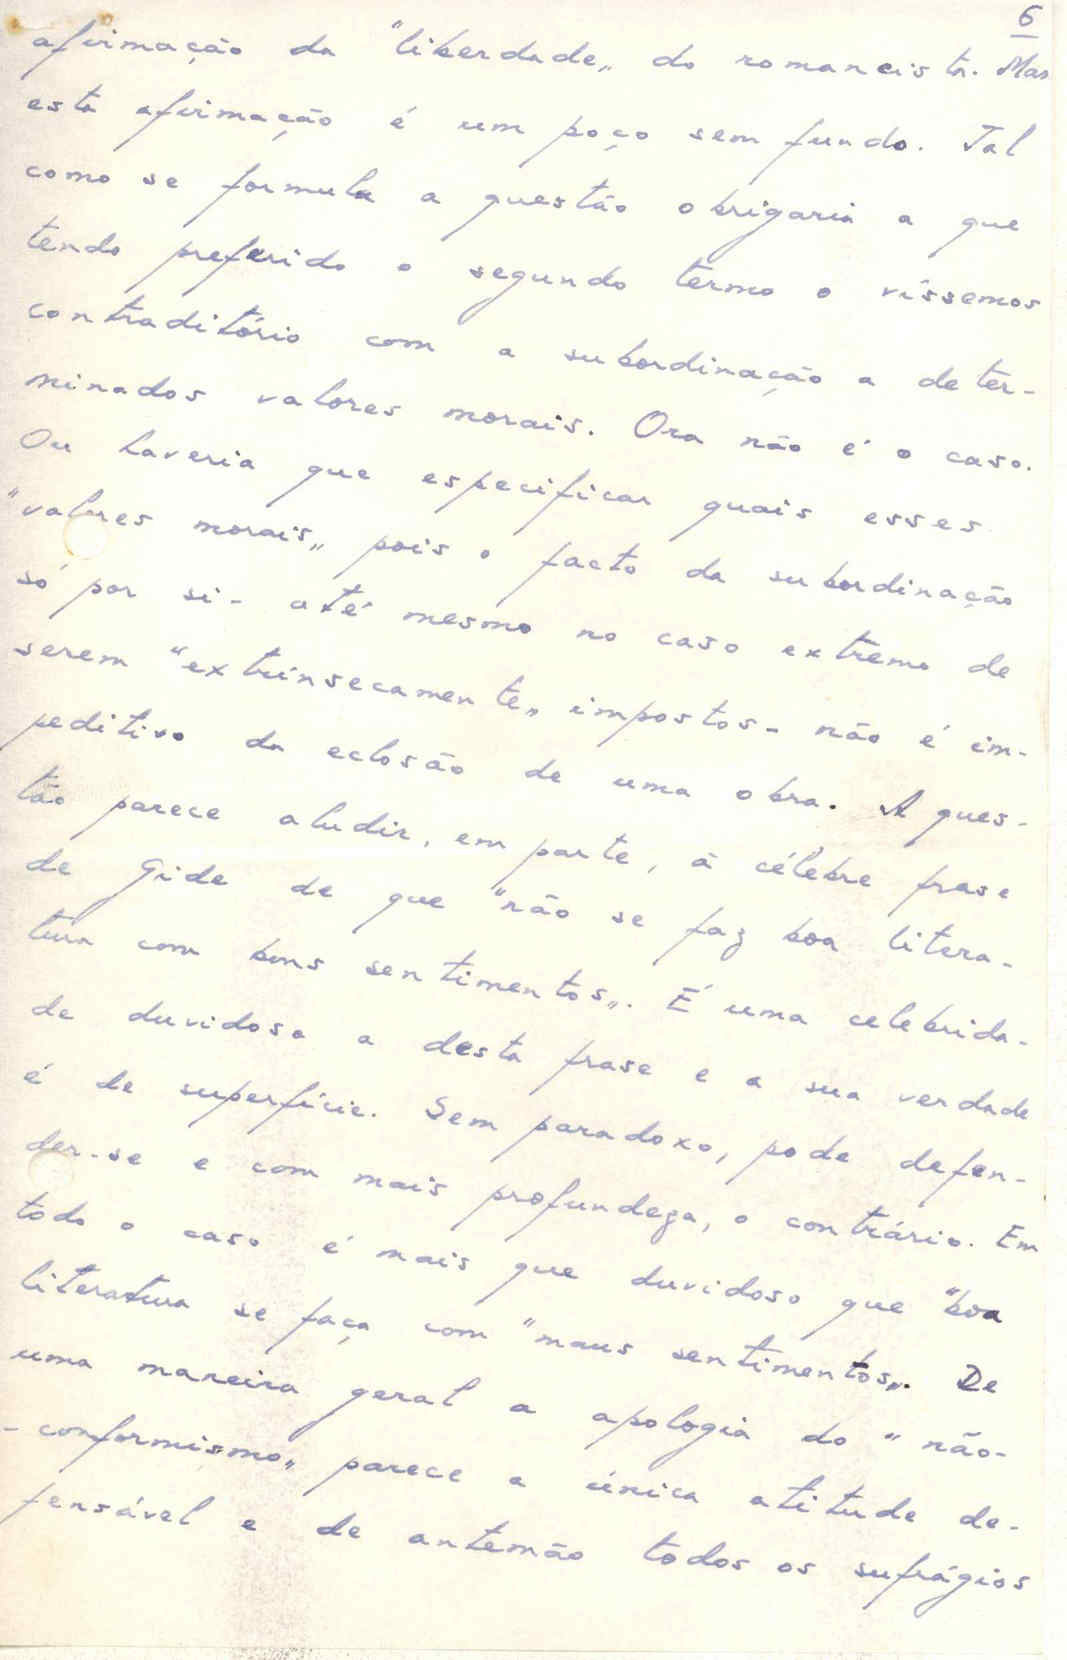 6
afirmação da "liberdade„ do romancista. Mas
esta afirmação é um poço sem fundo. Tal
como se formula a questão obrigaria a que
tendo preferido o segundo termo o víssemos
contraditório com a subordinação a deter-
minados valores morais. Ora não é o caso.
Ou haveria que especificar quais esses
"valores morais„ pois o facto da subordinação
só por si - até mesmo no caso extremo de
serem "extrinsecamente„ impostos - não é im-
peditivo da eclosão de uma obra. A ques-
tão parece aludir, em parte, à célebre frase
de Gide de que "não se faz boa litera-
tura com bons sentimentos„. É uma celebrida-
de duvidosa a desta frase e a sua verdade
é de superfície. Sem paradoxo, pode defen-
der-se e com mais profundeza, o contrário. Em
todo o caso é mais que duvidoso que "boa
literatura se faça com "maus sentimentos„. De
uma maneira geral a apologia do "não-
-conformismo„ parece a única atitude de-
fensável e de antemão todos os sufrágios